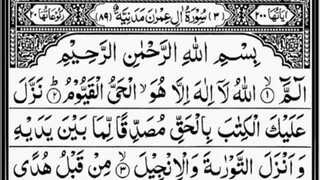 اٰيَاتُهَا ٢٠٠ (٣) سُوْرَةُ اٰلِ عِمْرٰنَ مَدَنِيَّةٌ (٨٩) رُكُوْعَاتُهَا ٢٠
بِسْمِ اللّٰهِ الرَّحْمٰنِ الرَّحِيْمِ
الٓمّٓ ۙ‏﴿۱﴾ اللّٰهُ لَاۤ اِلٰهَ اِلَّا هُوَ ۙ الْحَىُّ الْقَيُّوْمُ ؕ‏﴿۲﴾ نَزَّلَ
عَلَيْكَ الْكِتٰبَ بِالْحَقِّ مُصَدِّقًا لِّمَا بَيْنَ يَدَيْهِ
وَاَنْزَلَ التَّوْرٰىةَ وَالْاِنْجِيْلَ ۙ‏﴿۳﴾ مِنْ قَبْلُ هُدًى